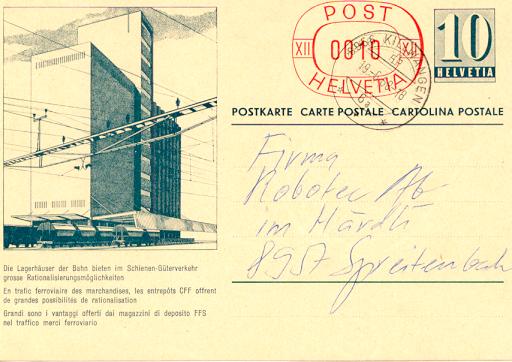 POST
XII 0010 XII
HELVETIA
10
HELVETIA
KILLWANGEN
POSTKARTE CARTE POSTALE CARTOLINA POSTALE
Firma
Robotec Ab
im Härdli
8957 Spreitenbach
Die Lagerhäuser der Bahn bieten im Schienen-Güterverkehr
grosse Rationalisierungsmöglichkeiten
En trafic ferroviaire des marchandises, les entrepôts CFF offrent
de grandes possibilités de rationalisation
Grandi sono i vantaggi offerti dai magazzini di deposito FFS
nel traffico merci ferroviario